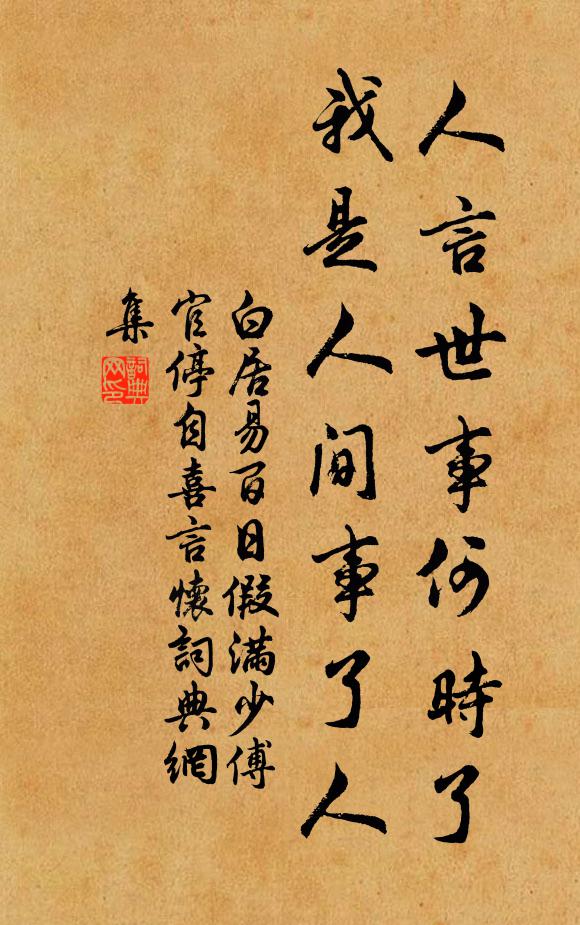 人言世事何時了
我是人間事了人
白居易百日假滿少傅
官停自喜言懷詞典網
集
詞典
网印